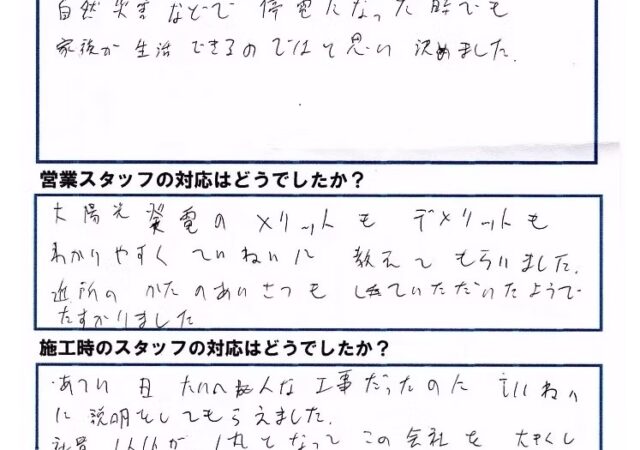 自然災害などで停電になった時でも
家族が生活できるのではと思い決めました.
営業スタッフの対応はどうでしたか？
太陽光発電のメリットもデメリットも
わかりやすくていねいに教えてもらいました.
近所のかたのあいさつもしていただいたようで
たすかりました
施工時のスタッフの対応はどうでしたか？
あつい日たいへんな工事だったのに ていねい
に説明をしてもらえました.
1人1人が1丸となってこの会社を大きくし